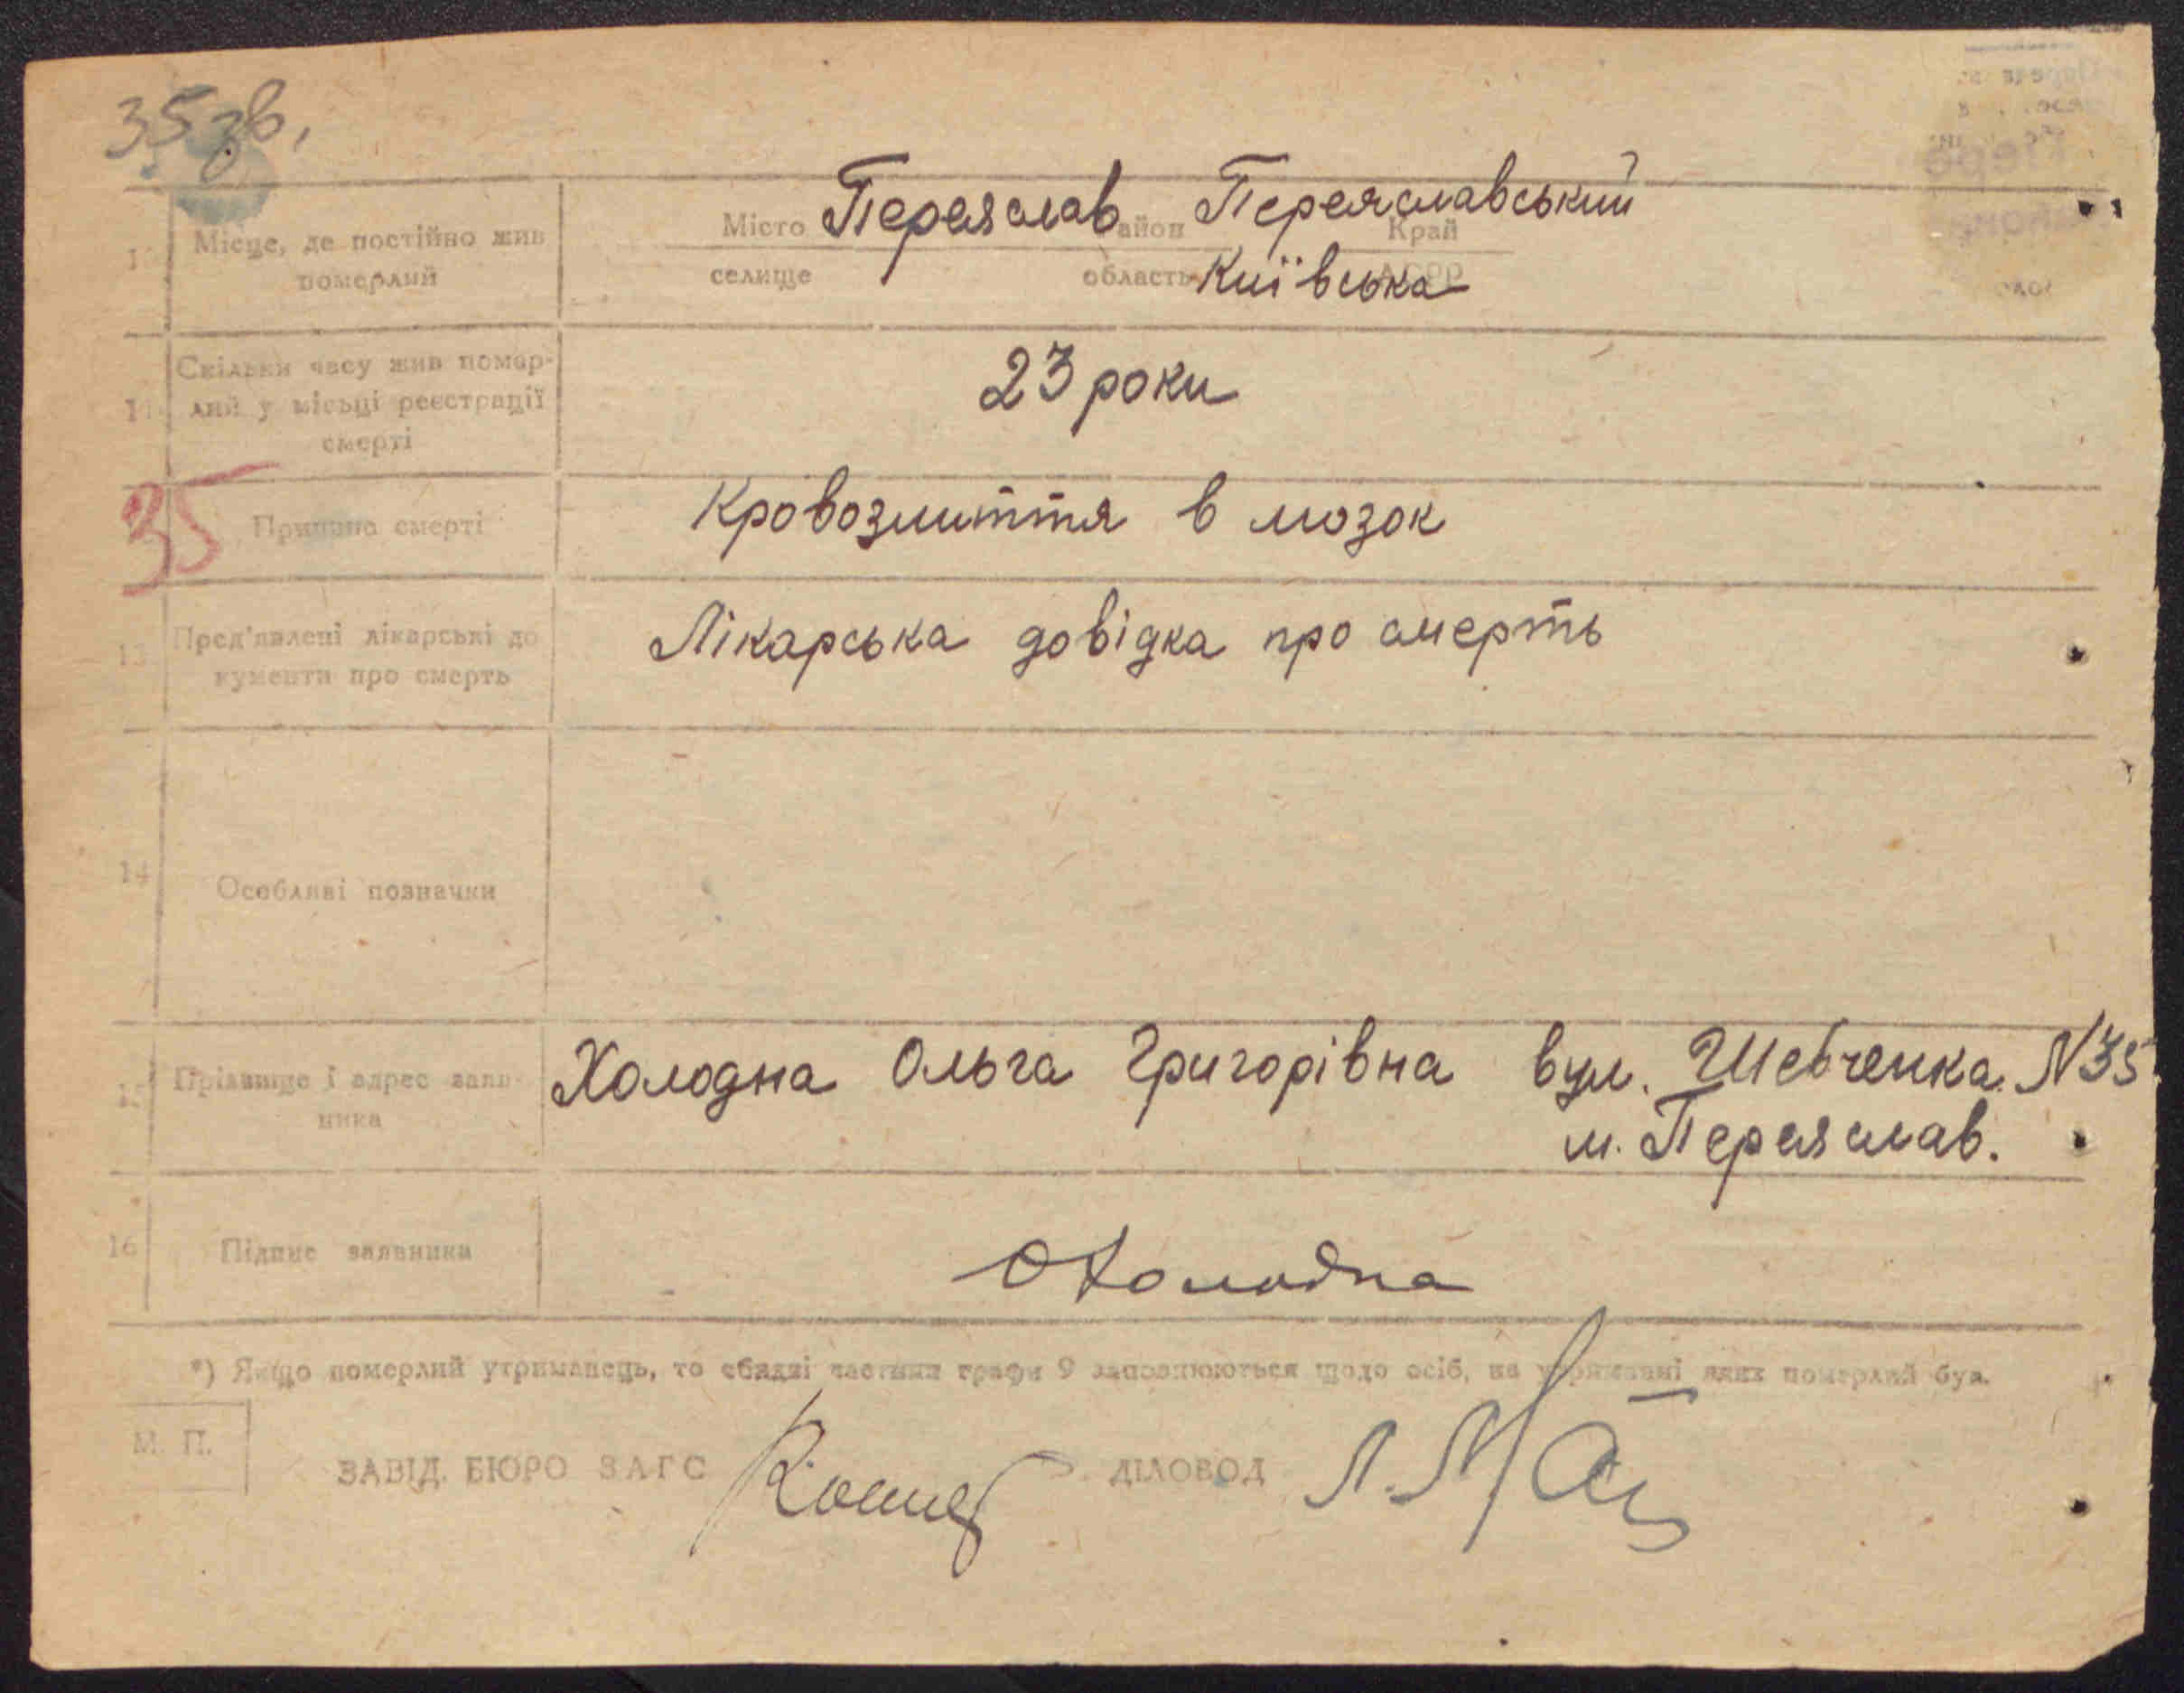 35 зв.
10 Місце, де постійно жив померлий
Місто Переяслав район Переяславський Край
селище область Київська АСРР
11 Скільки часу жив помер-
лий у місьці реєстрації
смерті
23 роки
35 Причина смерті
Кровозлиття в мозок
13 Пред'явлені лікарські до
кументи про смерть
Лікарська довідка про смерть
14 Особливі позначки
15 Прізвище і адрес заяв-
ника
Холодна Ольга Григорівна вул. Шевченка N35
м. Переяслав.
16 Підпис заявника
ОХолодна
*) Якщо померлий утриманець, то обидві частини графи 9 заповнюються щодо осіб, на утриманні яких померлий був.
М. П.
ЗАВІД. БЮРО ЗАГС
ДІЛОВОД